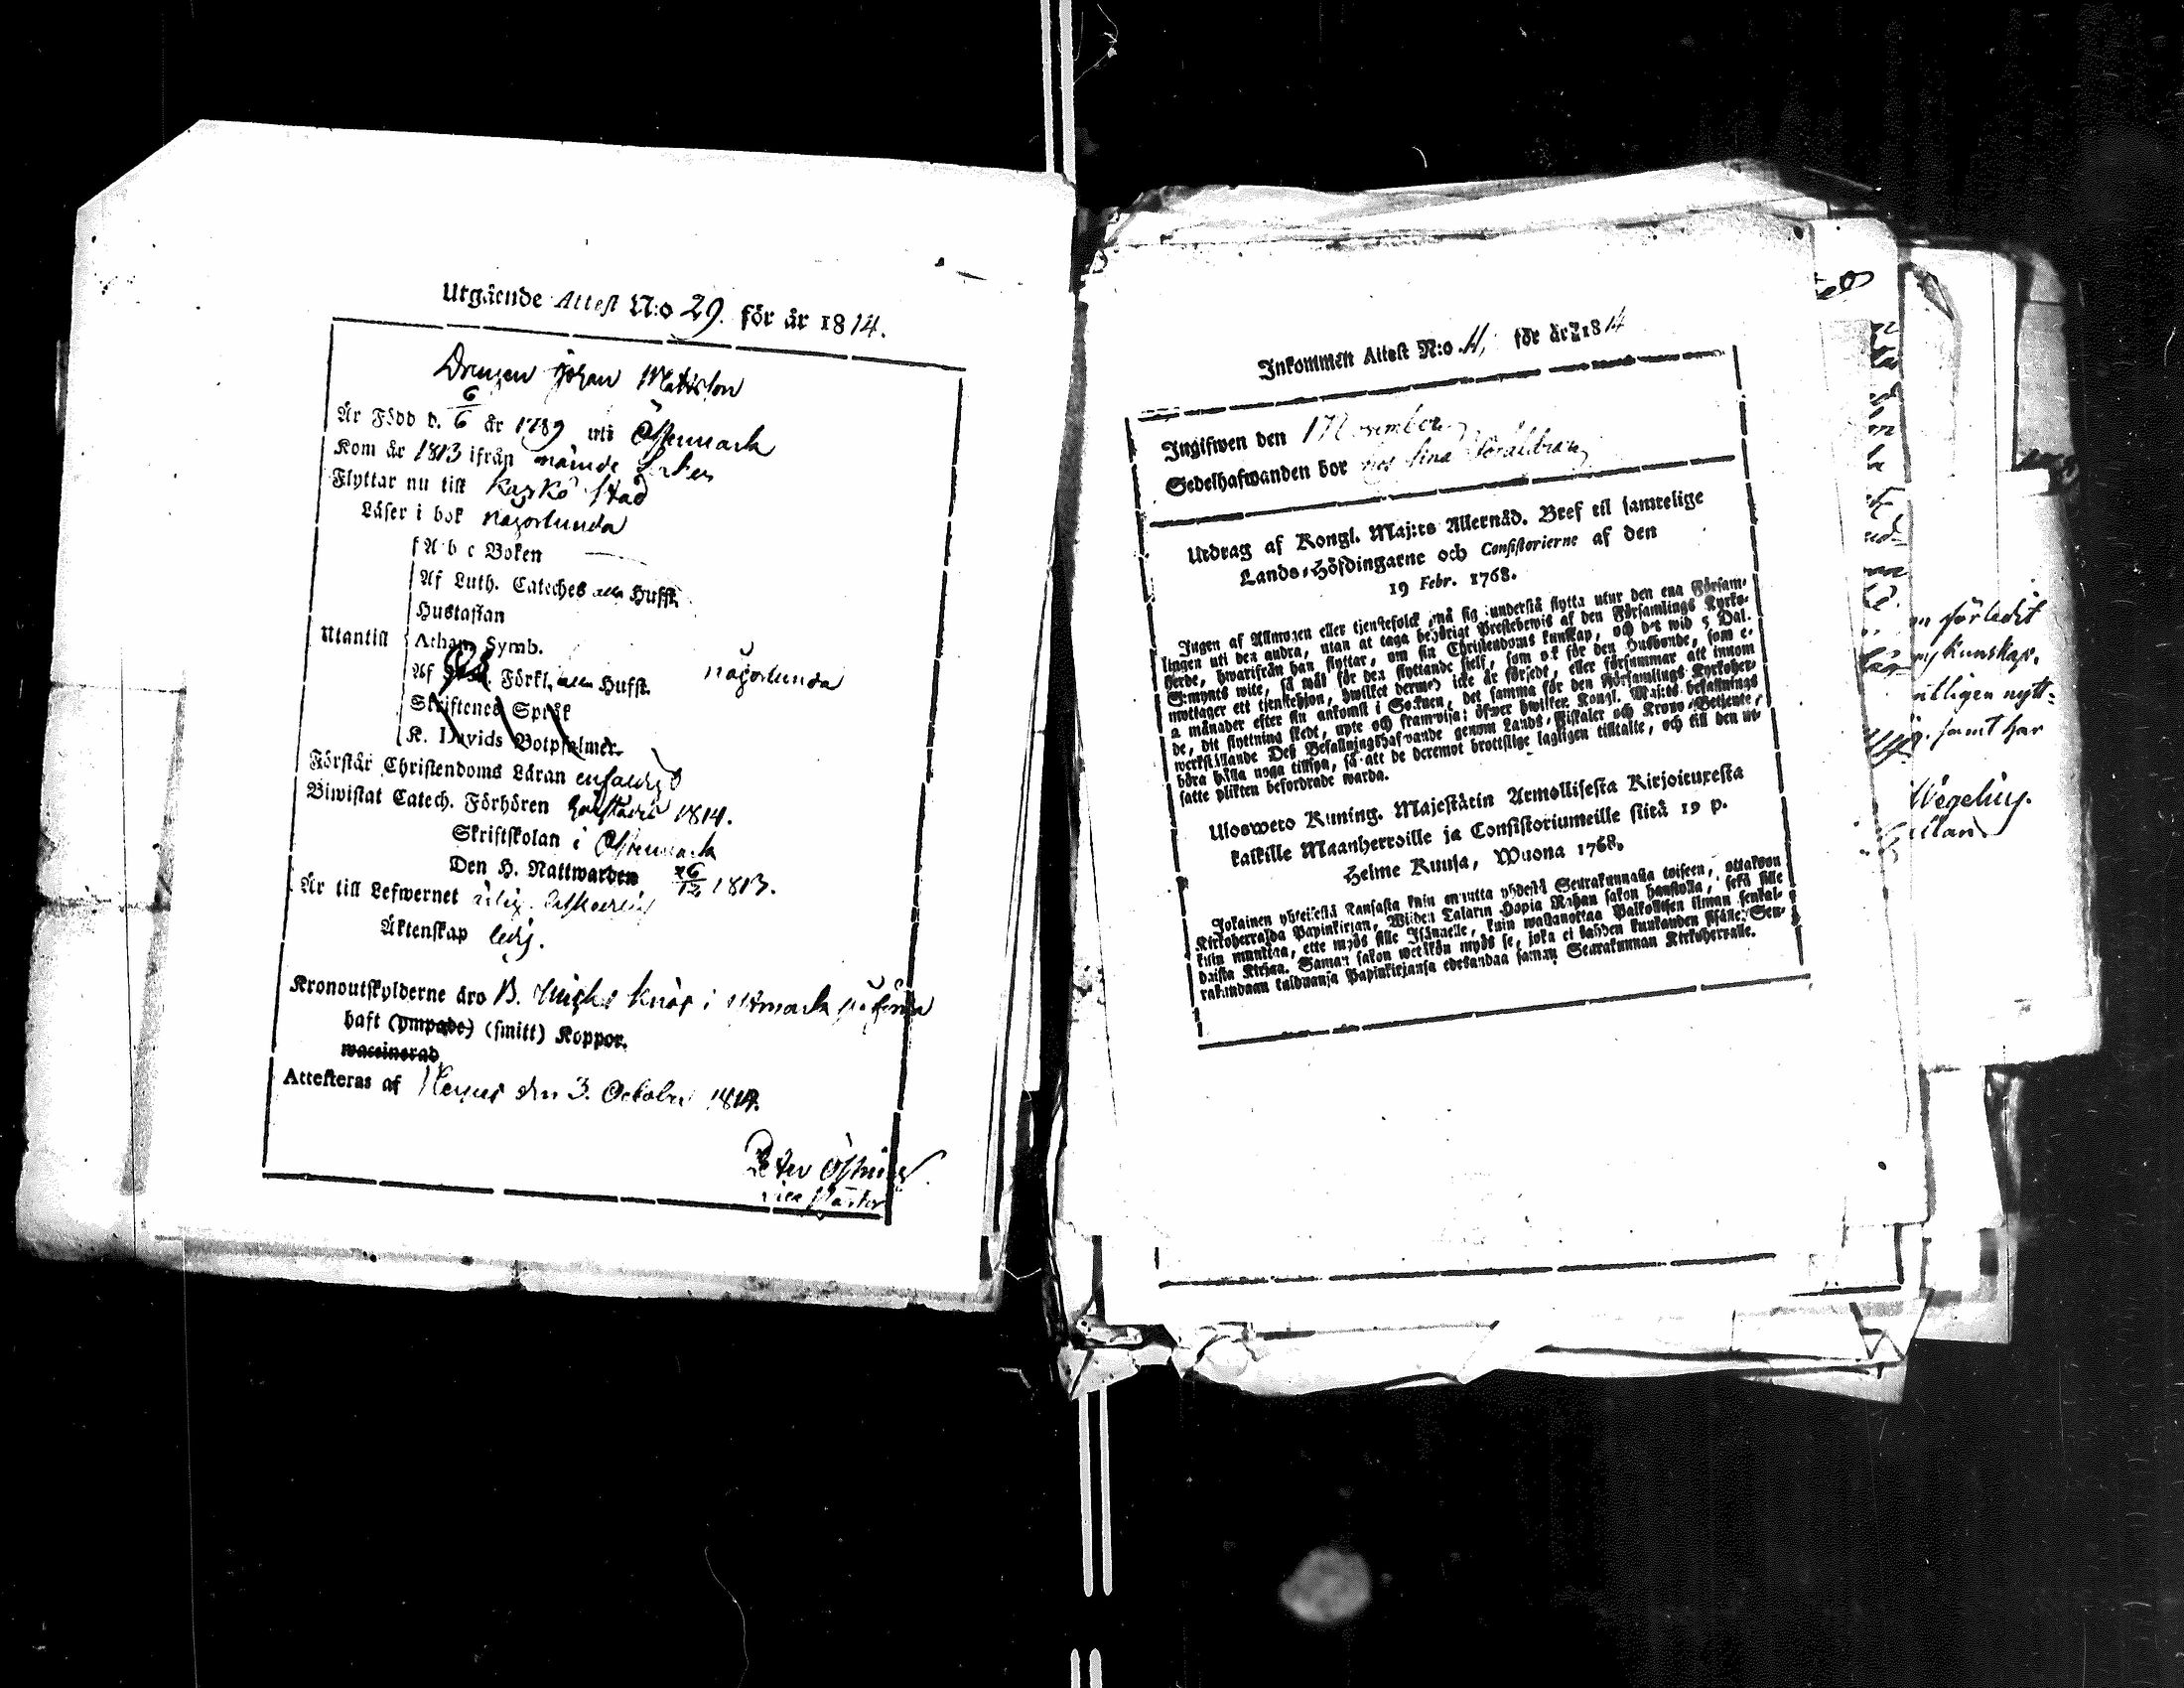 Utgående Attest N:o 29. för år 1814.
Drengen Johan Matsson
Är Född d. 6/6 år 1789 uti Östermark
Kom år 1813 ifrån
Flyttar nu till Kaskö Stad
Läser i bok någorlunda
A b c Boken
Af Luth. Cateches alla Hufst.
Hustaflan
Utantill Athan. Symb.
Af Förkl. alla Hufst. någorlunda
Skriftenes Språk
K. Davids Botpsalmer.
Förstår Christendoms Läran enfaldigt
Biwistat Catech. Förhören 1814.
Skriftskolan i Östermark
Den H. Nattwarden 26/12 1813.
Är till Lefwernet ärlig.
Äktenskap ledig.
Kronoutskylderne äro
haft (ympade) (smitt) Koppor.
waccinerad
Attesteras af den 3. October 1814.
Peter
vice Pastor
Inkommen Attest N:o 11, för år 1814
Ingifwen den 1 November
Sedelhafwanden bor hos sina Föräldrar
Utdrag af Kongl. Maj:ts Allernåd. Bref til samtelige
Lands-Höfdingarne och Consistorierne af den
19 Febr. 1768.
Ingen af Allmogen eller tjenstefolck må sig understå flytta utur den ena Församlingen
uti den andra, utan at taga behörigt Prestebewis af den Församlings Kyrkoherde,
hwarifrån han flyttar, om sin Christendoms kunskap, och det wid 5 Dal.
S:mynts wite, så wäl för den flyttande sjelf, som ock för den Husbonde, som emottager
ett tjenstehjon, hwilket dermed icke är försedt, eller försummar att innom
2 månader efter sin ankomst i Socknen, det samma för den Församlings Kyrkoherde,
dit flyttning skedt, upte och framwisa; öfwer hwilket Kongl. Maj:ts befallnings
werkställande Dess Befallningshafwande genom Lands-Fiskaler och Krono-Betjente,
böra hålla noga tillsyn, så att de deremot brottslige lagligen tilltalte, och till den utsatte
plikten befordrade warda.
Ulosweto Kuning. Majestätin Armollisesta Kirjoituxesta
kaikille Maanherroille ja Consistoriumeille siitä 19 p.
Helme Kuusa, Wuona 1768.
Jokainen yhteisestä Kansasta kuin muutta yhdestä Seurakunnasta toiseen, ottakoon
Kirkoherralda Papinkirjan, Wiiden Talarin Hopia Rahan sakon haastolla, sekä sille
kuin muuttaa, ette myös sille Isännelle, kuin wastanottaa Palkollisen ilman senkaldaista
Kirjaa. Saman sakon wetäkön myös se, joka ei kahden kuukauden sisälle, Seurakundaan
tulduansa Papinkirjansa edesandaa saman Seurakunnan Kirkoherralle.
förledit
kunskap.
nytt-
samt har
Wegelius.